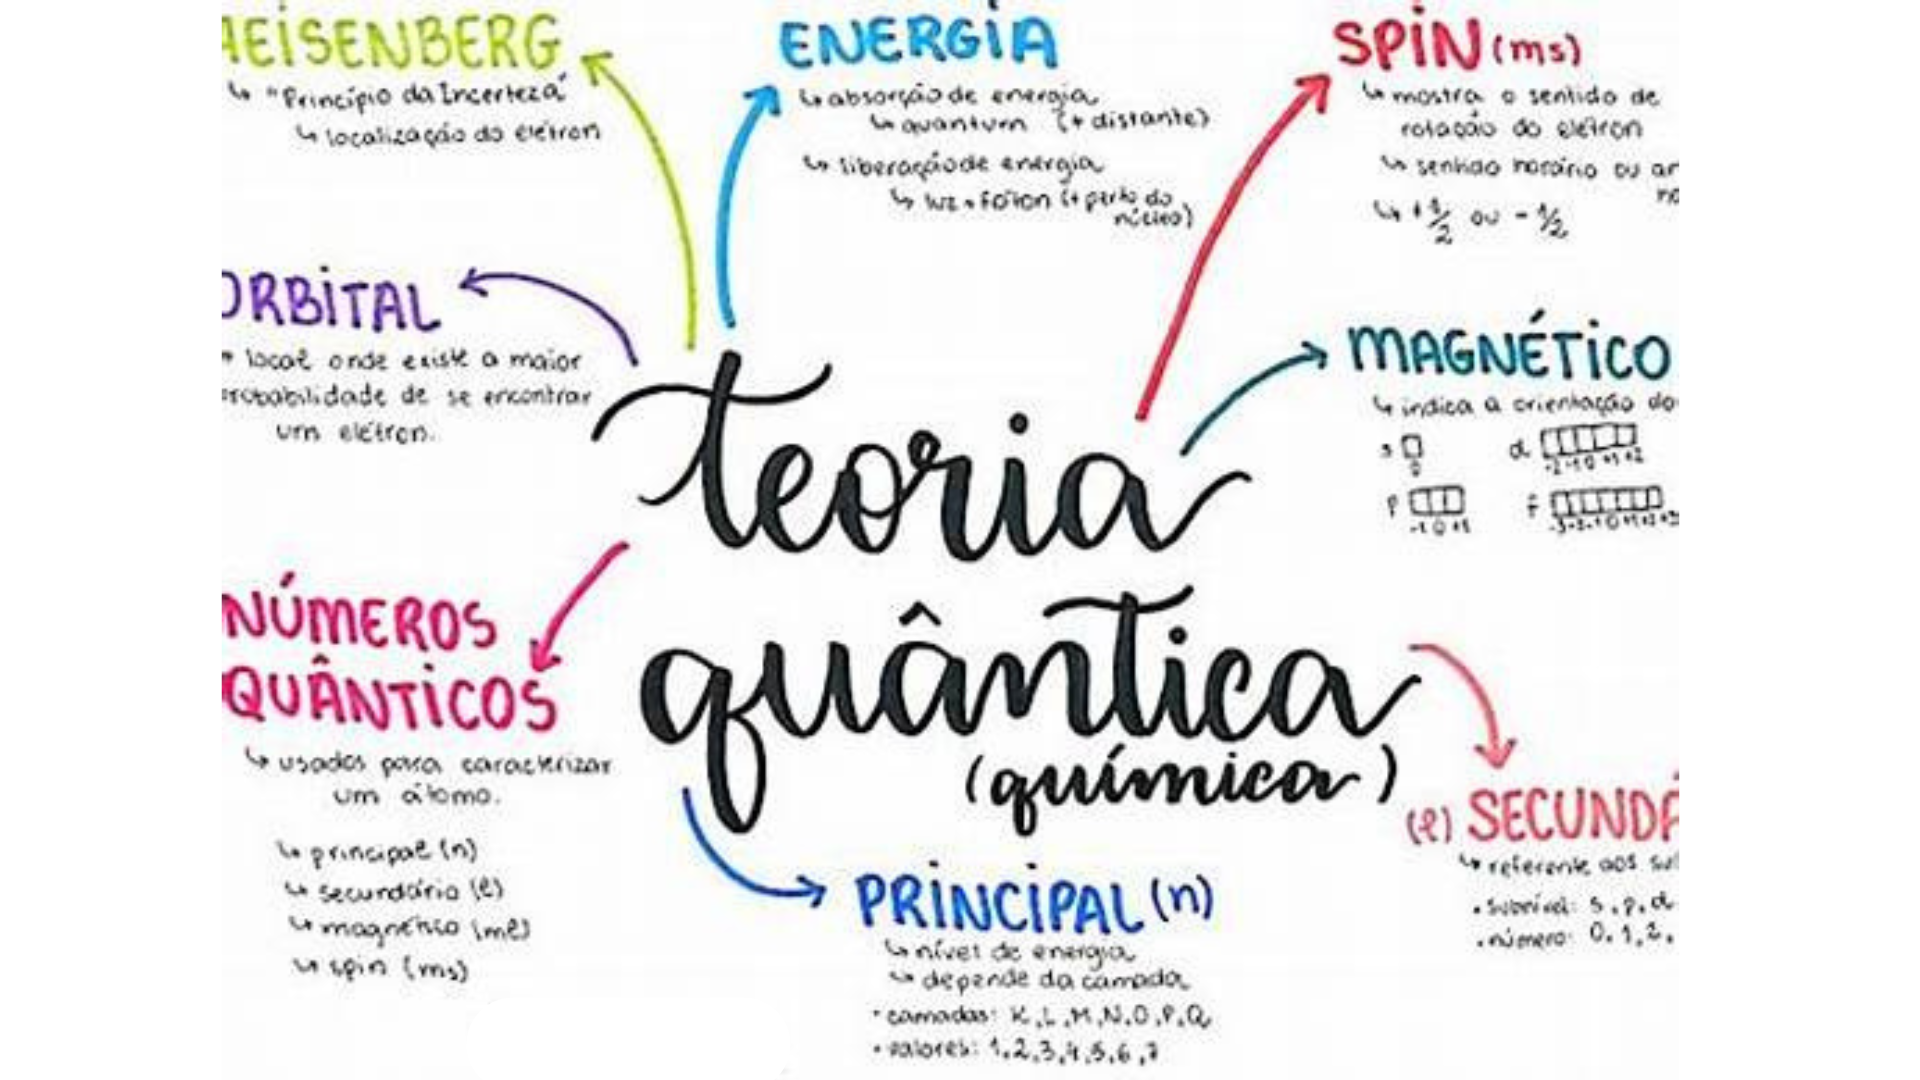 HEISENBERG
↳ "Princípio da Incerteza"
↳ localização do elétron
ENERGIA
↳ absorção de energia
↳ quantum (+ distante)
↳ liberação de energia
↳ luz = fóton (+ perto do
núcleo)
SPIN (ms)
↳ mostra o sentido de
rotação do elétron
↳ sentido horário ou
↳ +1/2 ou - 1/2
ORBITAL
local onde existe a maior
probabilidade de se encontrar
um elétron.
MAGNÉTICO
↳ indica a orientação do
s d
0 -2 -1 0 +1 +2
p f
-1 0 +1 -3 -2 -1 0 +1 +2 +3
teoria
quântica
(química)
NÚMEROS
QUÂNTICOS
↳ usados para caracterizar
um átomo.
↳ principal (n)
↳ secundário (ℓ)
↳ magnético (mℓ)
↳ spin (ms)
PRINCIPAL (n)
↳ nível de energia
↳ depende da camada
• camadas: K, L, M, N, O, P, Q
• valores: 1, 2, 3, 4, 5, 6, 7
(ℓ) SECUNDÁ
↳ referente aos
• subnível: s, p, d
• número: 0, 1, 2,